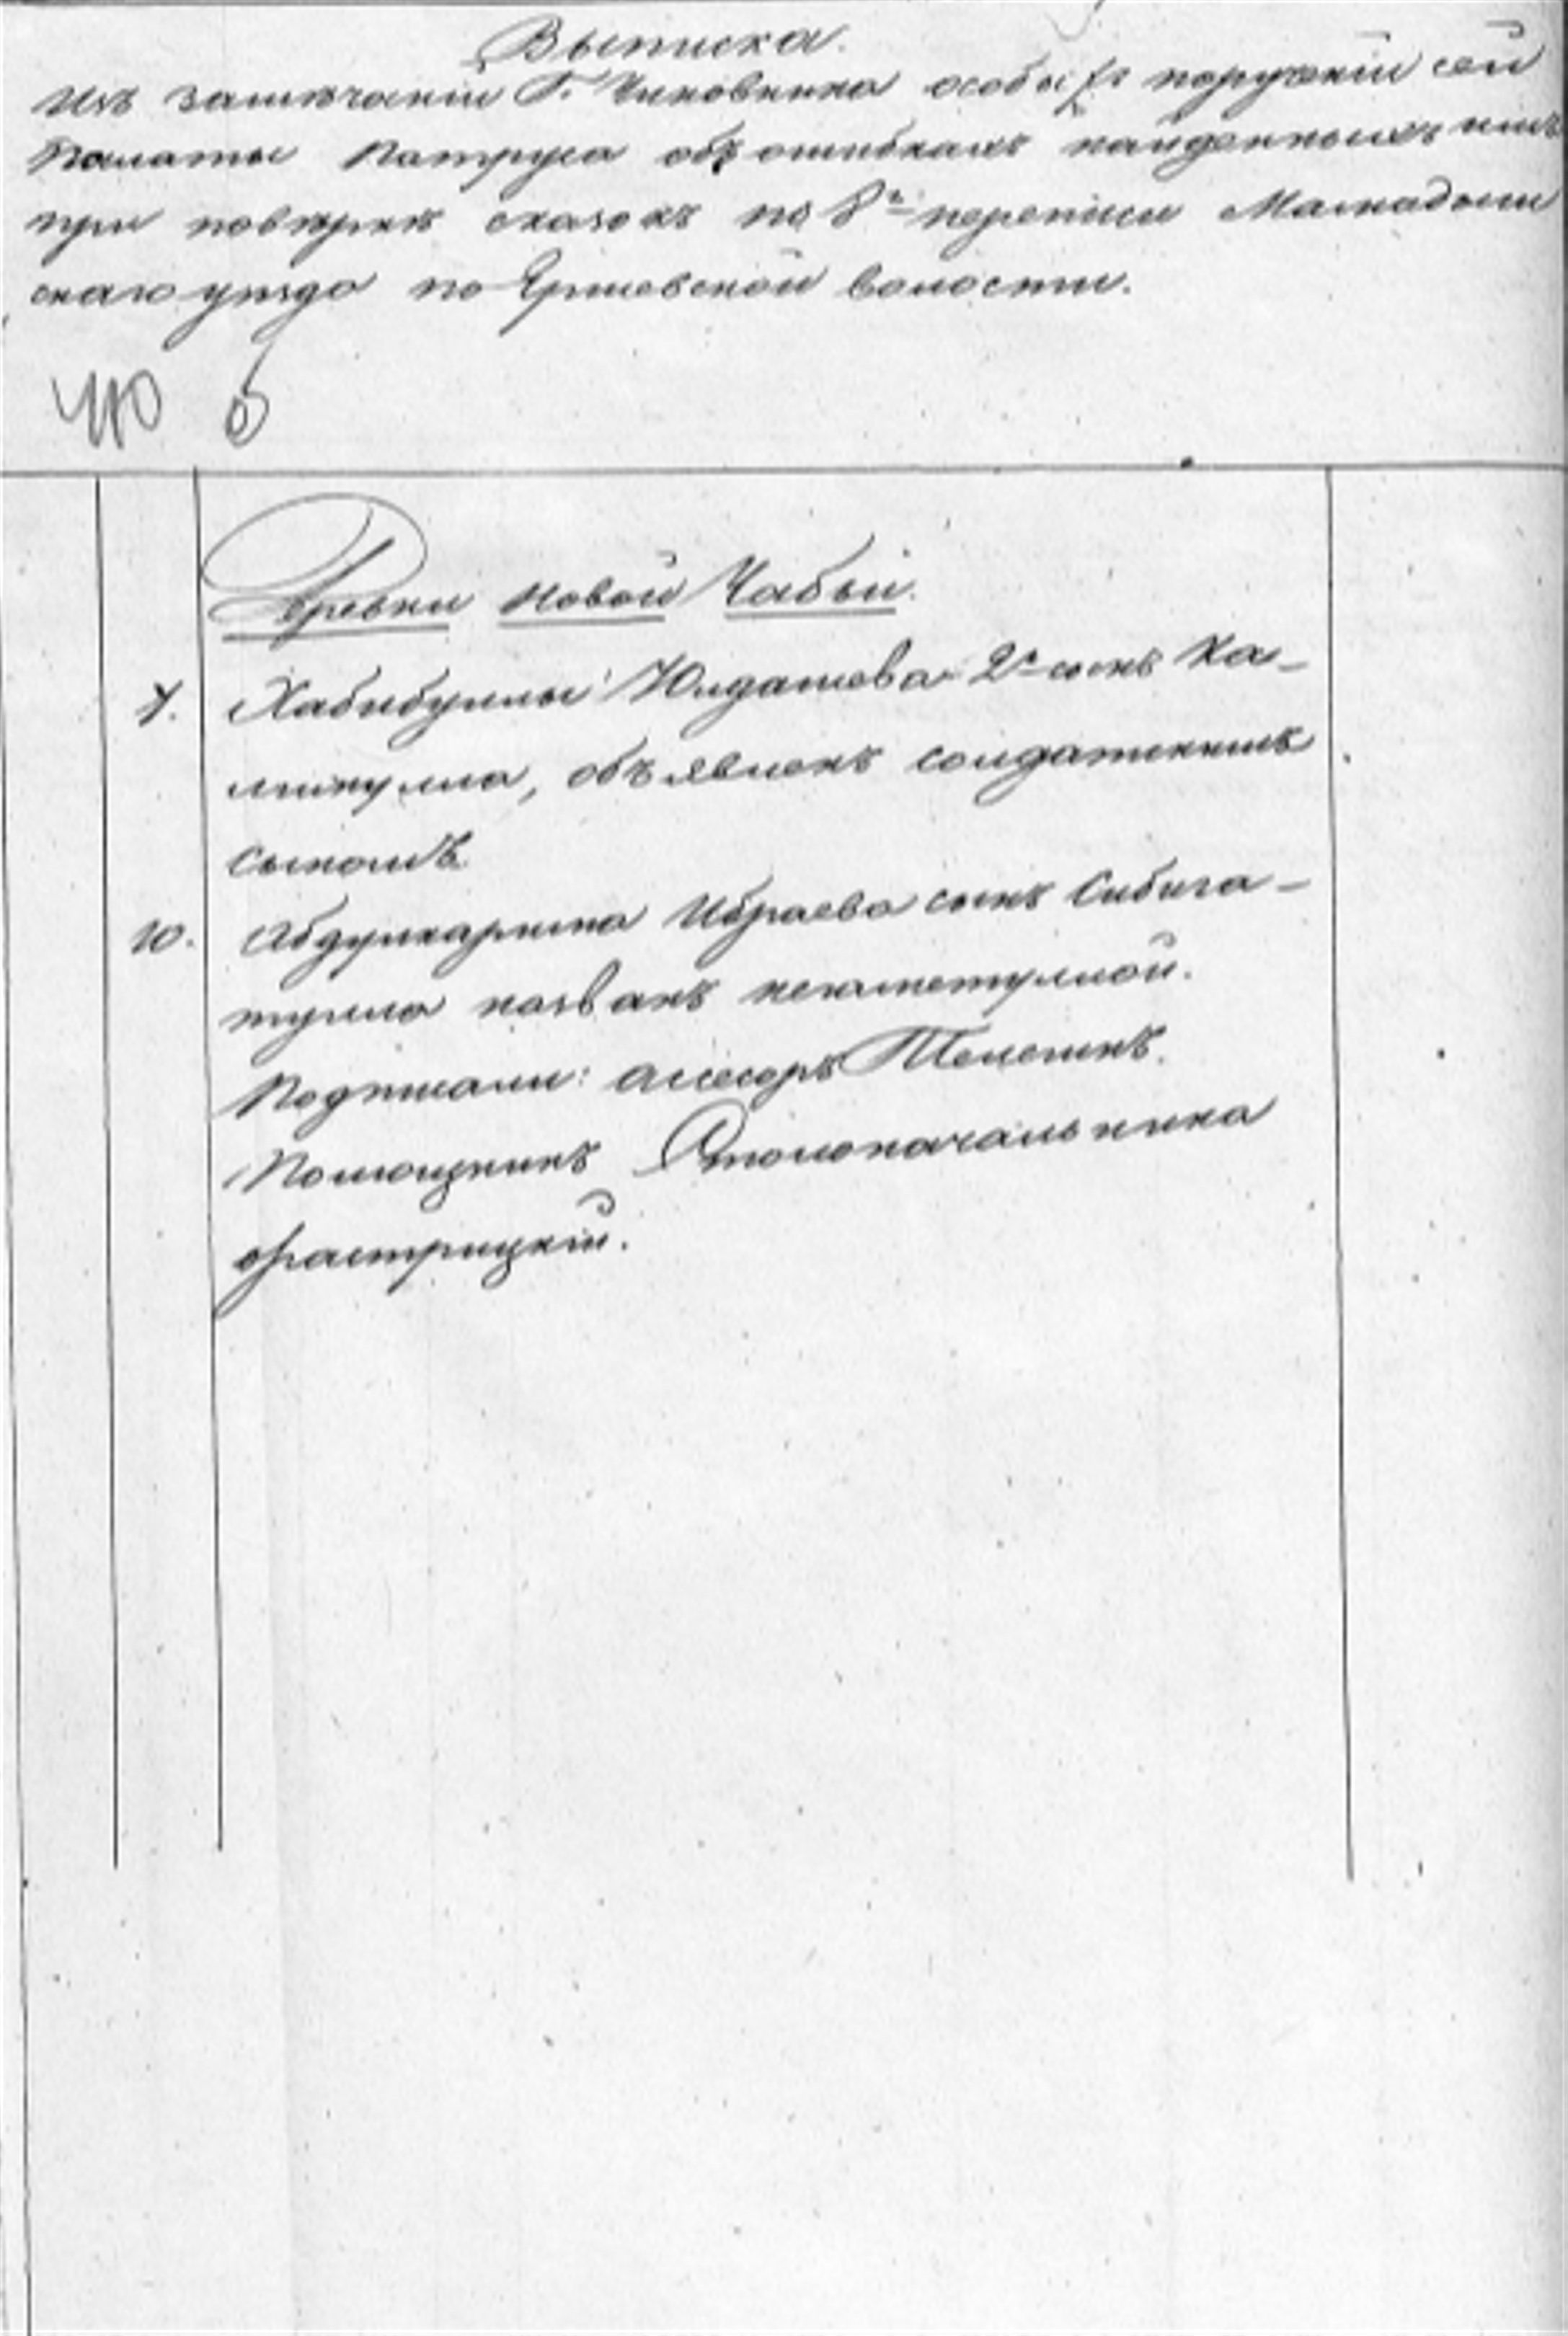 Выписка.
Изъ замѣчаніи Г. Чиновника особыхъ порученіи сей
Палаты Петруса объ ошибкахъ найденныхъ имъ
при повѣркѣ сказокъ по 8й переписи Мамадыш
скаго уѣзда по Ершевской волости.
Деревни Новой Чабьи.
Хабибуллы Юлдашева 2й сынъ Ха-
лиулла, объявленъ солдатскимъ
сыномъ
10. Абдулкарима Ибраева сынъ Сибага-
тулла названъ
Подписали: асесоръ Телешинъ.
Помощникъ Столоначальника